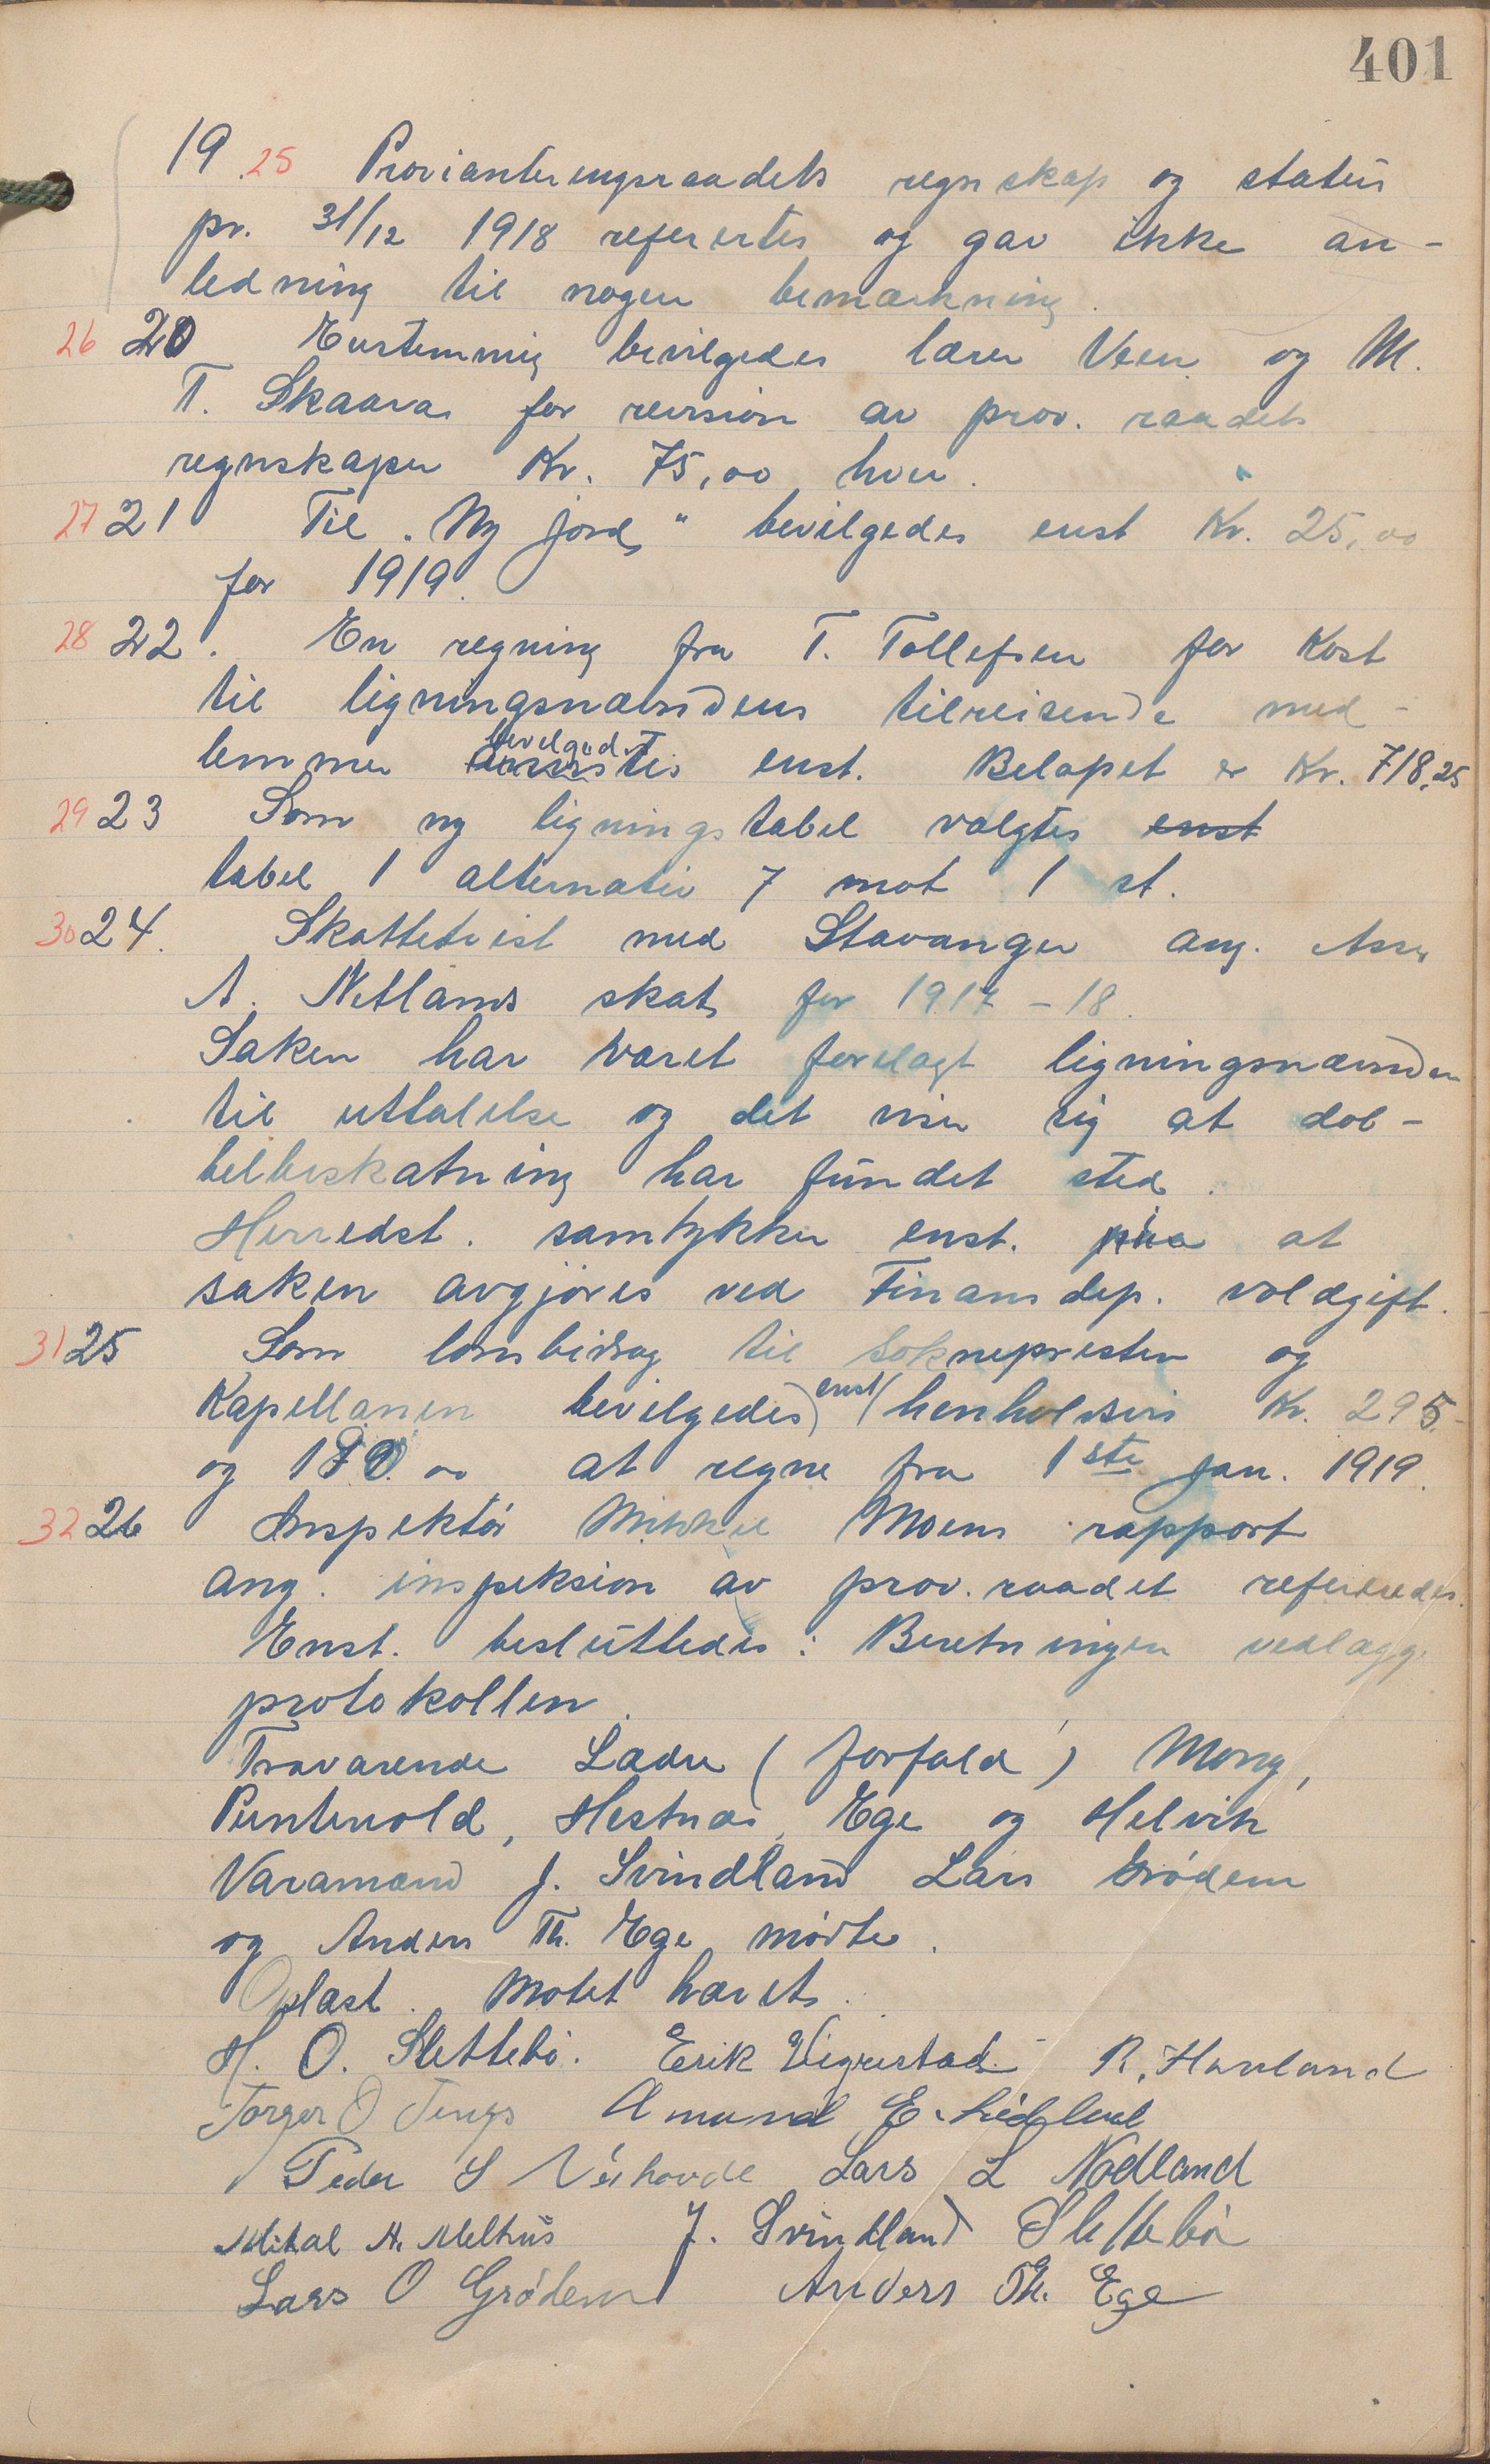 401
19 25 Provianteringsraadets regnskap og status
pr. 31/12 1918 refertes og gav ikke an-
ledning til nogen bemærkning.
26 20 Enstemmig bevilgedes lærer Veen og M.
T. Skaara for revision av prov. raadets
regnskaper Kr. 75,00 hver.
27 21 Til „Ny jord" bevilgedes enst Kr. 25,00
for 1919.
28 22. En regning fra T. Tollefsen for Kost
til ligningsnævndens tilreisende med-
lemmer bevilgedes enst. Beløpet er Kr. 718,25
29 23 Som ny ligningstabel valgtes enst
tabel 1 alternativ 7 mot 1 st.
30 24. Skattetvist med Stavanger ang.
A. Netlands skat for 1917-18.
Saken har været forelagt ligningsnævnden
til uttalelse og det viser sig at dob-
belbeskatning har fundet sted.
Herredst. samtykker enst. at
saken avgjøres ved Finansdep. voldgift.
31 25 Som lønsbidrag til Soknepresten og
Kapellanen bevilgedes enst henholdsvis Kr. 295.-
og at regne fra 1ste jan. 1919.
32 26 Inspektør Mikkel Moens rapport
ang. inspeksion av prov. raadet refereredes.
Enst. besluttedes: Beretningen vedlægg.
protokollen.
Fraværende Lædre (forfald) Mong,
Puntervold, Hestnæs, Ege og Helvik
Varamænd J. Svindland Lars Grødem
og Anders Th. Ege møtte.
Oplæst. Møtet hævet.
H. O. Slettebø. Erik Vigrestad. R. Havland
Torger O Tengs Amund E.
Peder S Lars L Nodland
Mikal A. Melhus J. Svindland Slettebø
Lars O Grødem Anders Th. Ege